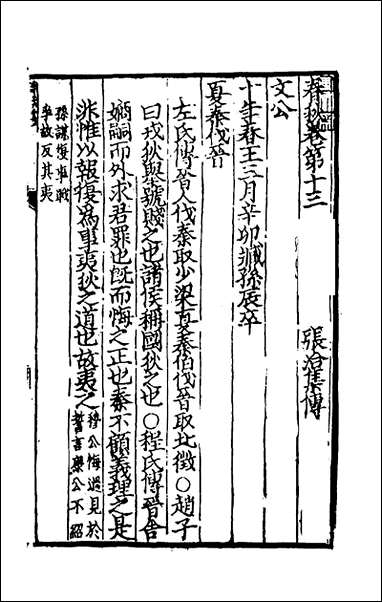 春秋卷第十三　張洽集傳
文公
十年春王三月辛卯臧孫辰卒
夏秦伐晉
左氏傳晉人伐秦取少梁夏秦伯伐晉取北徵○趙子
曰戎狄舉號賤之也諸侯稱國狄之也○程氏傳晉舍
嫡嗣而外求君罪也旣而悔之正也秦不顧義理之是
非惟以報復爲事夷狄之道也故夷之
穆公悔過見於
誓言康公不紹
孫謀復事戰
爭故反其夷